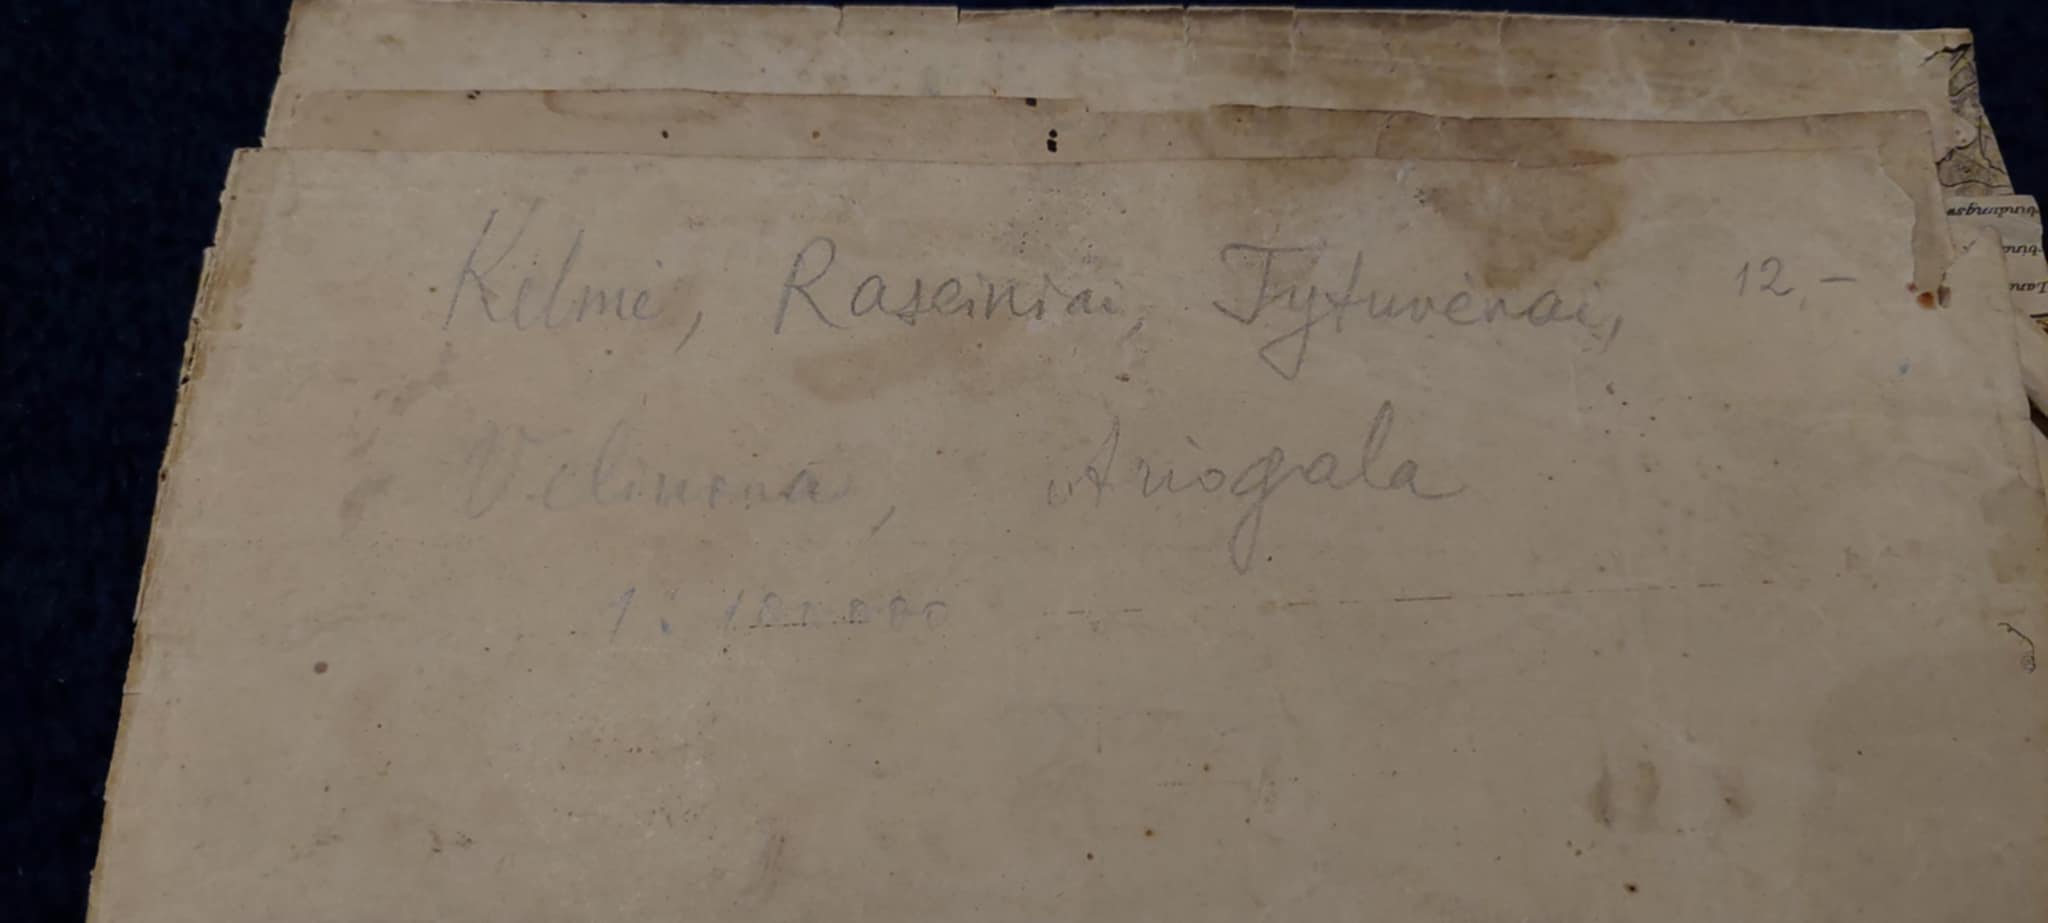 Kelmė, Raseiniai, Tytuvėnai, 12,-
Veliuona, Ariogala
1:100000